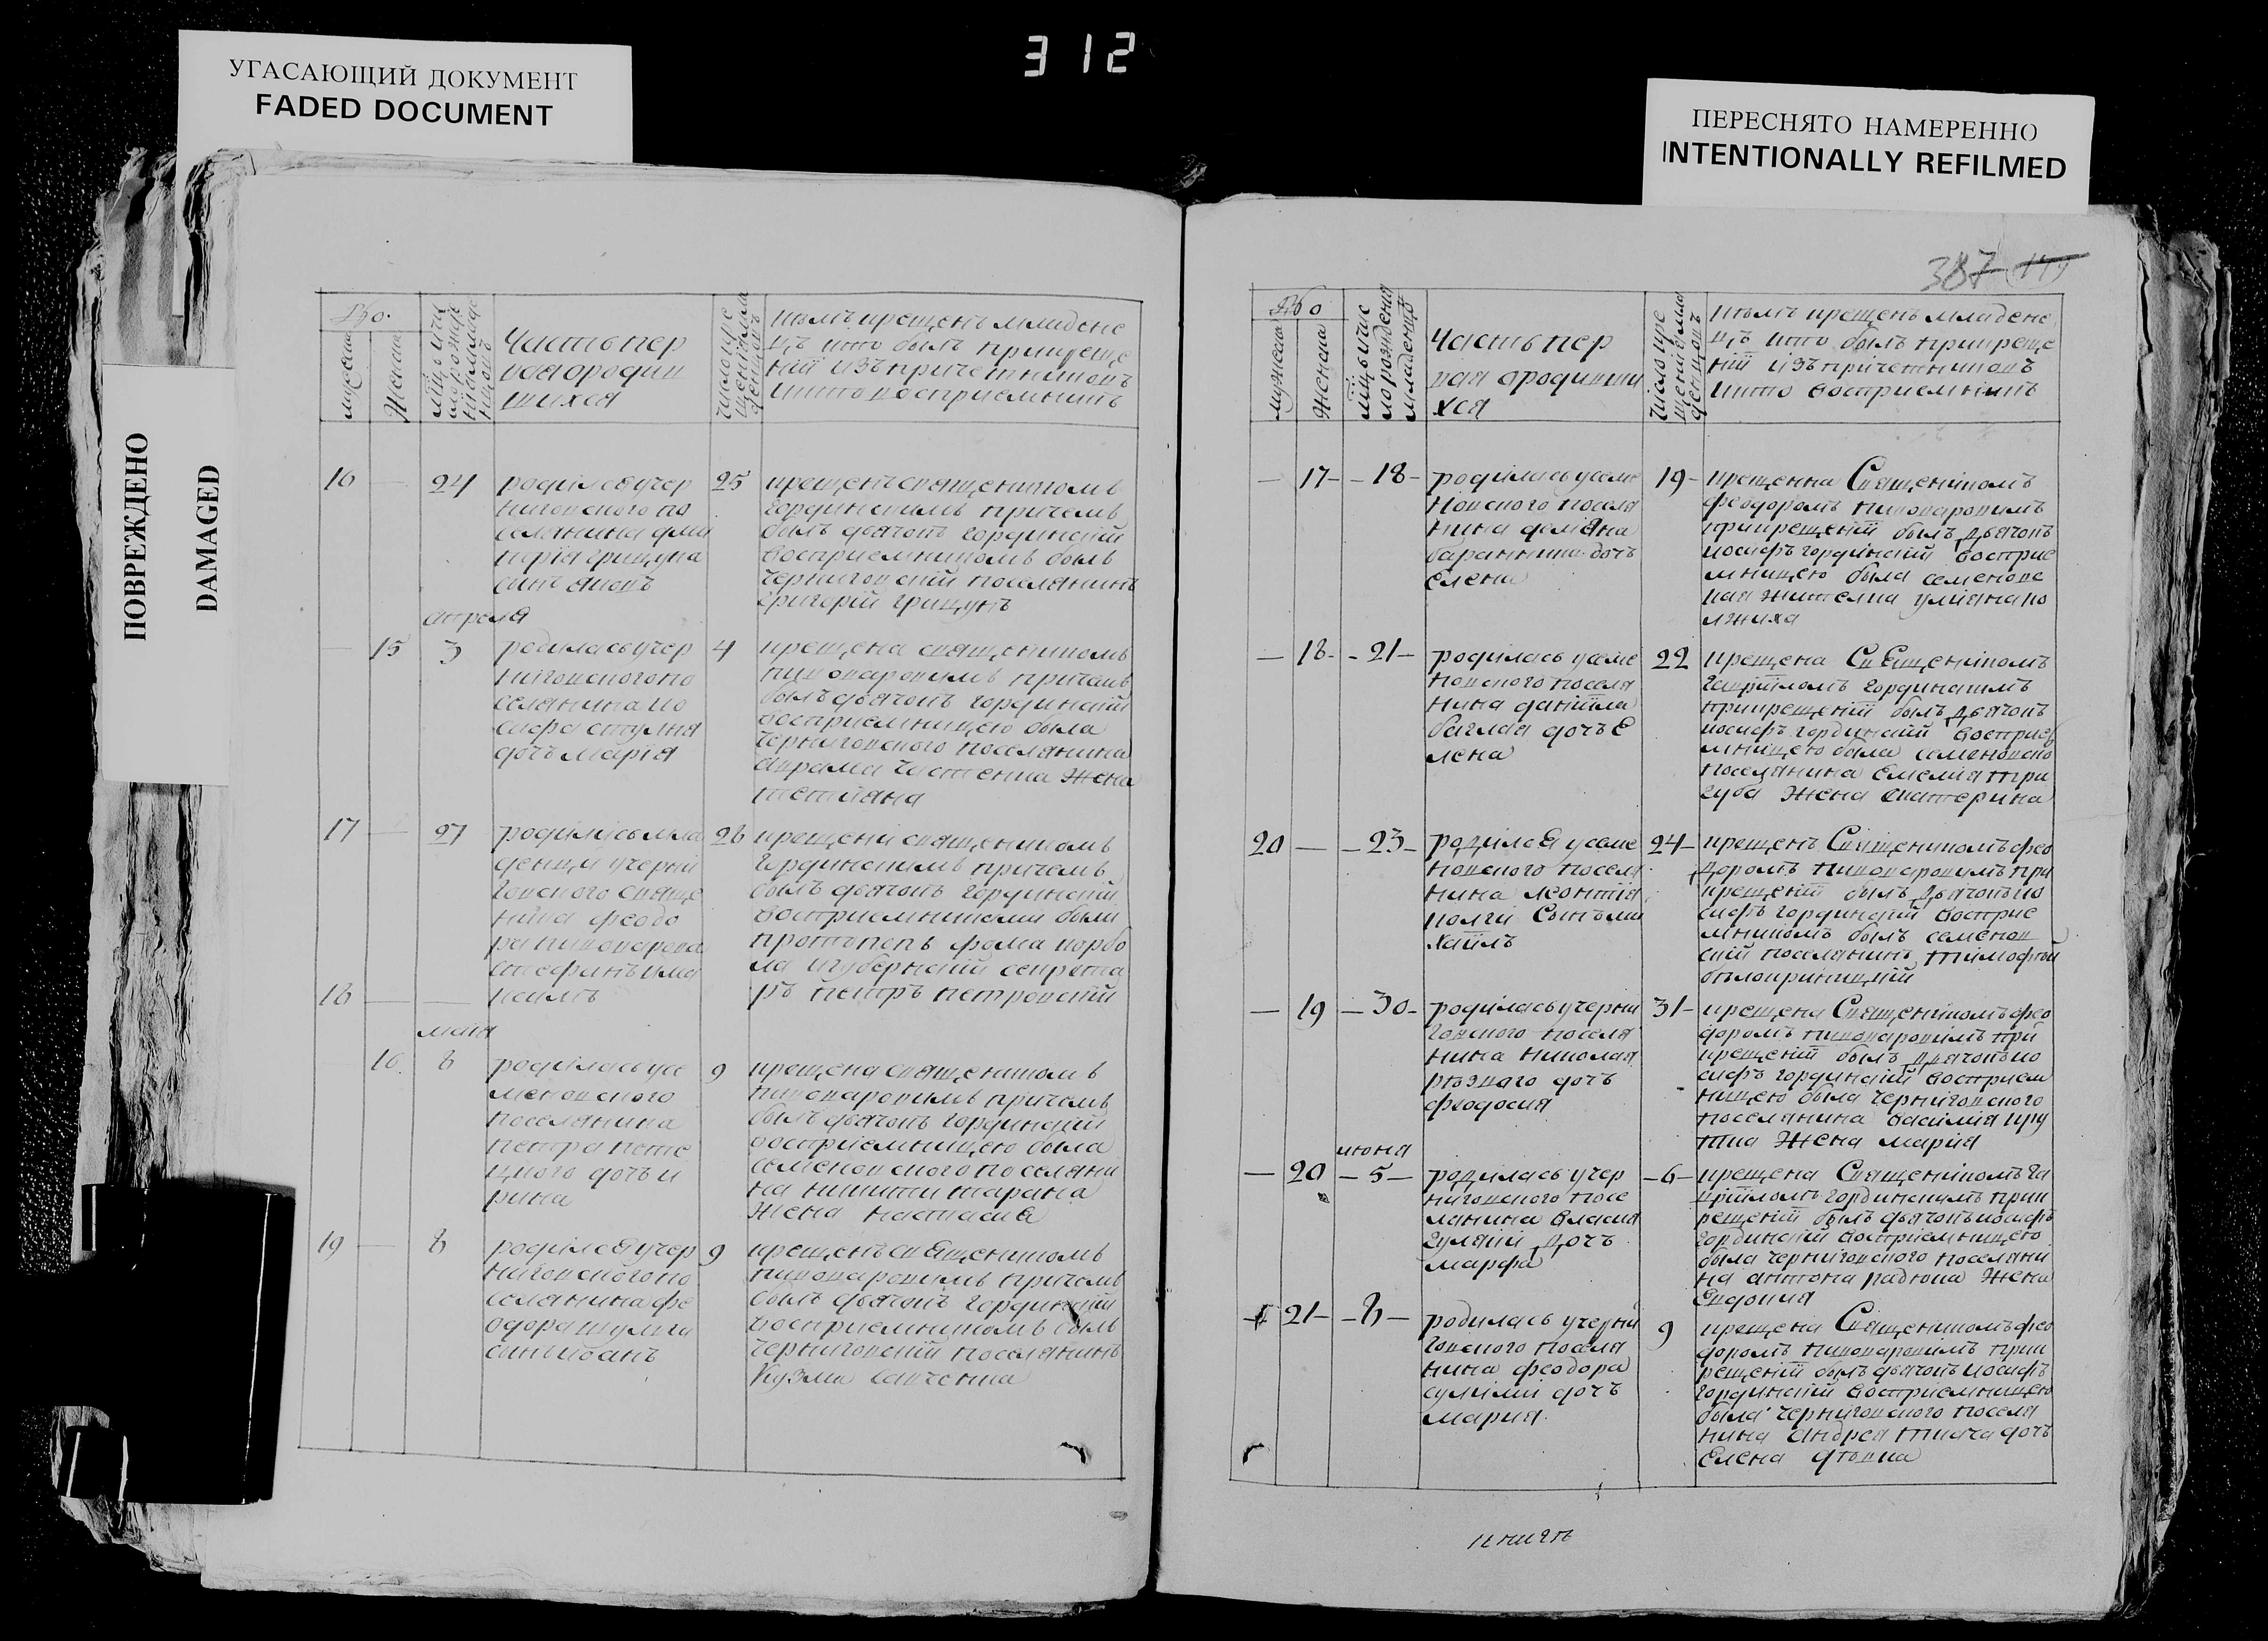 312
УГАСАЮЩИЙ ДОКУМЕНТ
FADED DOCUMENT
ПЕРЕСНЯТО НАМЕРЕННО
INTENTIONALLY REFILMED
ПОВРЕЖДЕНО
DAMAGED
Часть пер
вая ородив
шихся
кемъ крещенъ младене
цъ кто былъ прикреще
ніи изъ причетниковъ
икто восприемникъ
16 — 24
родился учер
ниговского по
селянина дми
трія грицуна
синъ яковъ
25
крещенъ священикомъ
гординскимъ причемъ
былъ дьячокъ гординский
восприемникомъ былъ
черниговский поселянинъ
григорій грицунъ
апреля
— 15 3
родилась учер
ниговского по
селянина ио
сифа ступня
дочь марія
4
крещена священикомъ
пивоваровимъ причемъ
былъ дьячокъ гординский
восприемницею была
черниговского поселянина
аврама чистенка жена
тетияна
17 — 27
родились мла
денци учерни
говского свяще
ника феодо
ра пивоварова
стефанъ има
18 — —
ксимъ
28
крещени священикомъ
гординскимъ причемъ
былъ дьячокъ гординский
восприемниками были
протъпопъ фома корбо
ла игубернский секрета
ръ петръ петровский
мaия
16 8
родилась усе
меновского
поселянина
петра пете
цкого дочь и
рина
9
крещена священикомъ
пивоваровимъ причомъ
былъ дьячокъ гординский
восприемницею была
семеновского поселяни
на никити тарана
жена настасия
19 — 8
родился учер
ниговского по
селянина фе
одора шулги
синъ иванъ
9
крещенъ священикомъ
пивоваровимъ причемъ
былъ дьячокъ гординский
восприемникомъ былъ
черниговский поселянинъ
Кузма савченка
387
Часть пер
вая ородивши
хся
кемъ крещенъ младене
цъ кто былъ прикреще
ніи изъ причетниковъ
икто восприемникъ
— 17 — 18 —
родилась усеме
новского поселя
нина демяна
баранника дочь
елена
19 —
крещенна Священікомъ
феодоромъ пивоваровимъ
прикрещеніи былъ дьячокъ
иосифъ гординский восприе
мницею была семеновс
кая жителка улияна ко
лжиха
— 18 — 21 —
родилась усеме
новского поселя
нина даніила
баглая дочь е
лена
22
крещена Священікомъ
гавріиломъ гординскимъ
прикрещеніи былъ дьячокъ
иосифъ гординский восприе
мницею была семеновско
поселянина емелія три
губа жена екатерина
20 — — 23 —
родился усеме
новского поселя
нина леонтія
колги Синъ ми
хаилъ
24 —
крещенъ Священикомъ фео
доромъ пивоваровимъ при
крещеніи былъ дьячокъ ио
сифъ гординский восприе
мникомъ былъ семенов
ский поселянинъ тимофей
билокриницкий
— 19 — 30 —
родилась учерни
говского поселя
нина николая
резного дочь
феодосия
31 —
крещена Священікомъ фео
доромъ пивоваровимъ при
крещеніи былъ дьячокъ ио
сифъ гординский восприем
ницею была черниговского
поселянина василия кру
тка жена мария
июня
— 20 — 5 —
родилась учер
ниговского посе
лянина власия
гуляни дочь
марфа
— 6 —
крещена Священікомъ га
вріиломъ гординскимъ прик
рещеніи былъ дьячокъ иосифъ
гординский восприемницею
была черниговского поселяни
на антона радкова жена
Евдокия
— 21 — 8 —
родилась учерни
говского поселя
нина феодора
сулими дочь
мария
9
крещена Священикомъ фео
доромъ пивоваровимъ прик
рещеніи былъ дьячокъ иосифъ
гординский восприемницею
была черниговского поселя
нина андрея ткача дочь
елена